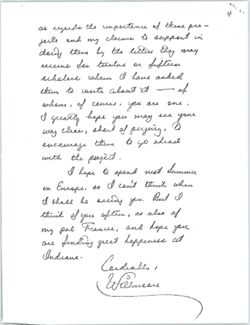 4
as regards the importance of these pro-
jects and my claims to support in
doing them by the letters they may
receive from twelve or fifteen
scholars whom I have asked
them to write about it — of
whom, of course, you are one.
I greatly hope you may see your
way clear, short of perjury, to
encourage them to go ahead
with the project.
I hope to spend next Summer
in Europe, so I can't think when
I shall be seeing you. But I
think of you often, as also of
my pal Frances, and hope you
are finding great happiness at
Indiana.
Cordially,